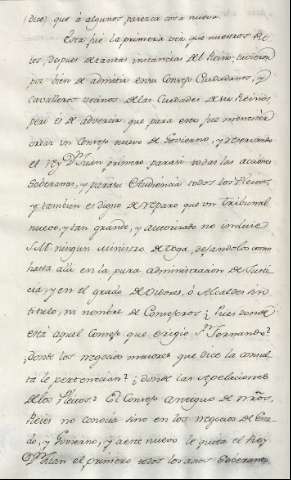 (dice) que á algunos parezca cosa nueva.
Esta fué la primera vez que nuestros Re-
yes, despues de tantas instancias del Reino, tuvieron
por bien de admitir en su Consejo Ciudadanos, y
Cavalleros vecinos de las Ciudades de sus Reinos,
pero es de advertir que para esto fue menester
crear un Consejo nuevo de Govierno, y reservando
el Rey Dn. Juan primero para sí todas las acciones
Soberanas, y para su Audiencia todos los Pleitos,
y tambien es digno de reparo que un Tribunal
nuevo, y tan grande, y autorizado no
S. M. ningun Ministro de Toga, dejandolos como
hasta allí en la pura administracion de Justi-
cia, y en el grado de Oidores, ó Alcaldes sin
titulo, ni nombre de Consejeros; Pues donde
está aquel Consejo que erigió Sn. Fernando?
¿donde los negocios maiores que dice la consul-
ta le pertenecian? ¿donde las apelaciones
de los Pleitos? El Consejo antiguo de nros.
Reies no conocia sino en los negocios de Esta-
do, y Govierno, y a este nuevo le quita el Rey
Dn. Juan el primero todos los casos Soberanos